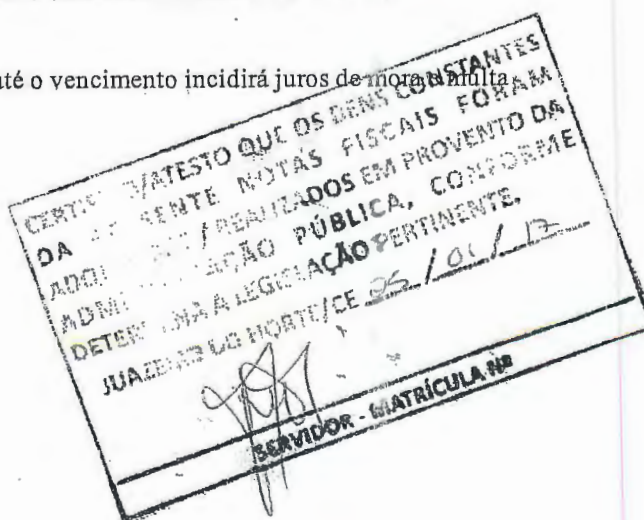 até o vencimento incidirá juros de mora e multa
/ATESTO QUE OS BENS CONSTANTES
DA SENTE NOTAS FISCAIS FORAM
/REALIZADOS EM PROVENTO DA
PÚBLICA, CONFORME
A LEGISLAÇÃO PERTINENTE.
JUAZEIRO DO NORTE/CE / 01 / 17
SERVIDOR - MATRÍCULA Nº